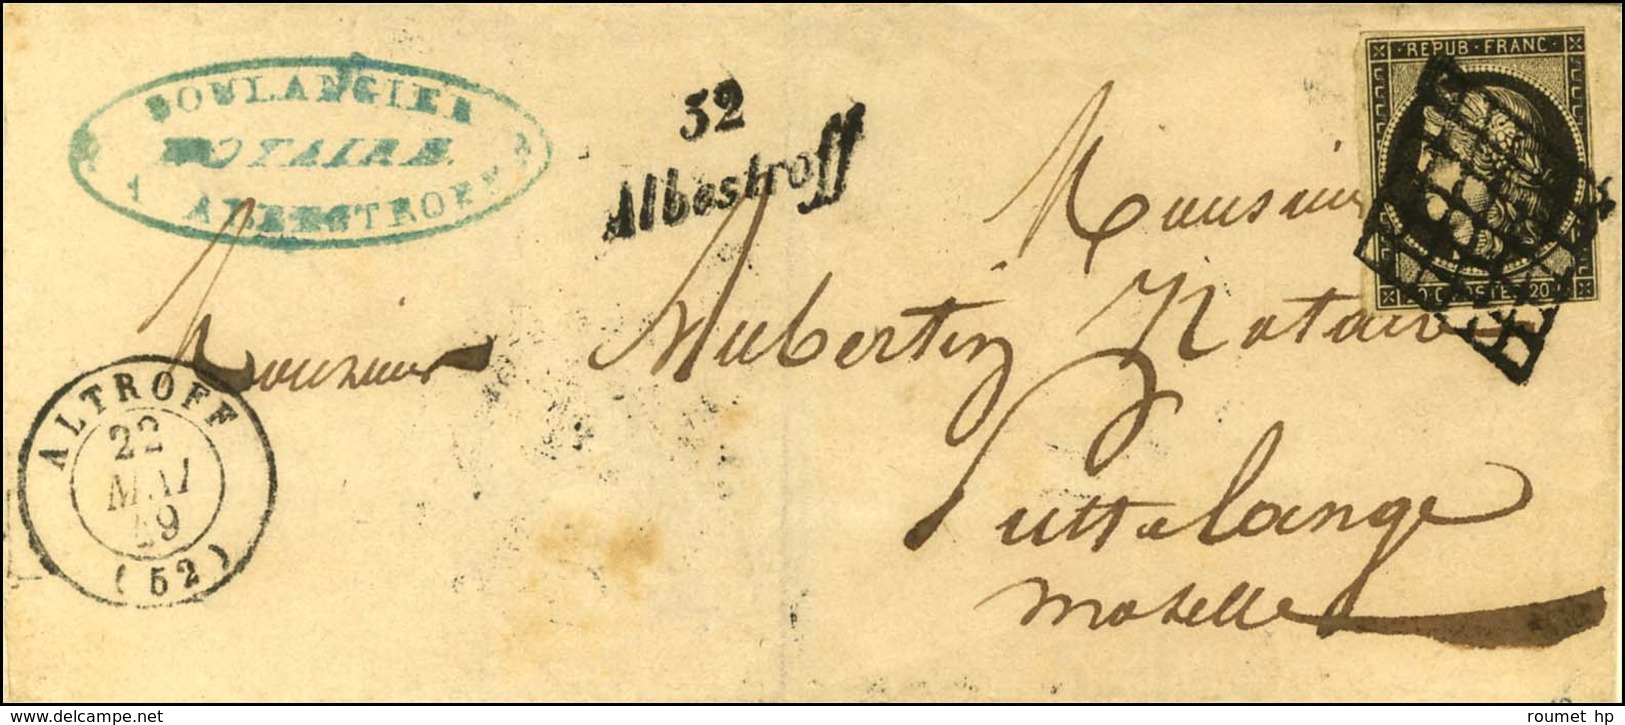 BOULANGIER
NOTAIRE
A ALBESTROFF
52
Albestroff
REPUB · FRANC
20 C POSTES 20
Monsieur
Monsieur
Aubertin Notaire
Puttelange
Moselle
ALTROFF
22
MAI
49
(52)
roumet hp